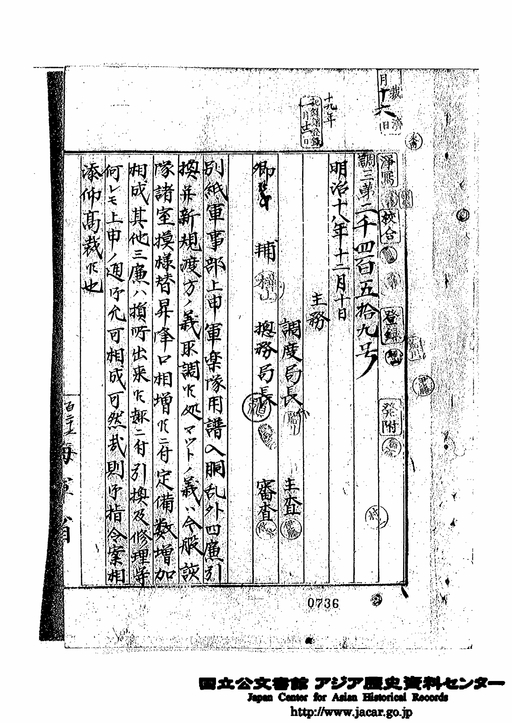 月十六日
裁済
十九年
一月十一日
浄写
校合
登録
発附
調三第二千四百五拾九号
明治十八年十二月十日
主務
調度局長
主査
卿
輔
総務局長
審査
別紙軍事部上申軍楽隊用譜入胴乱外四廉引
換并新規渡方ノ義取調候処マツトノ義ハ今般該
隊諸室模様替昇降口相増候ニ付定備数増加
相成其他三廉ハ損所出来候趣ニ付引換及修理等
何レモ上申ノ通御允可相成可然哉則御指令案相
添仰高裁候也
海軍省
0736
国立公文書館 アジア歴史資料センター
Japan Center for Asian Historical Records
http://www.jacar.go.jp